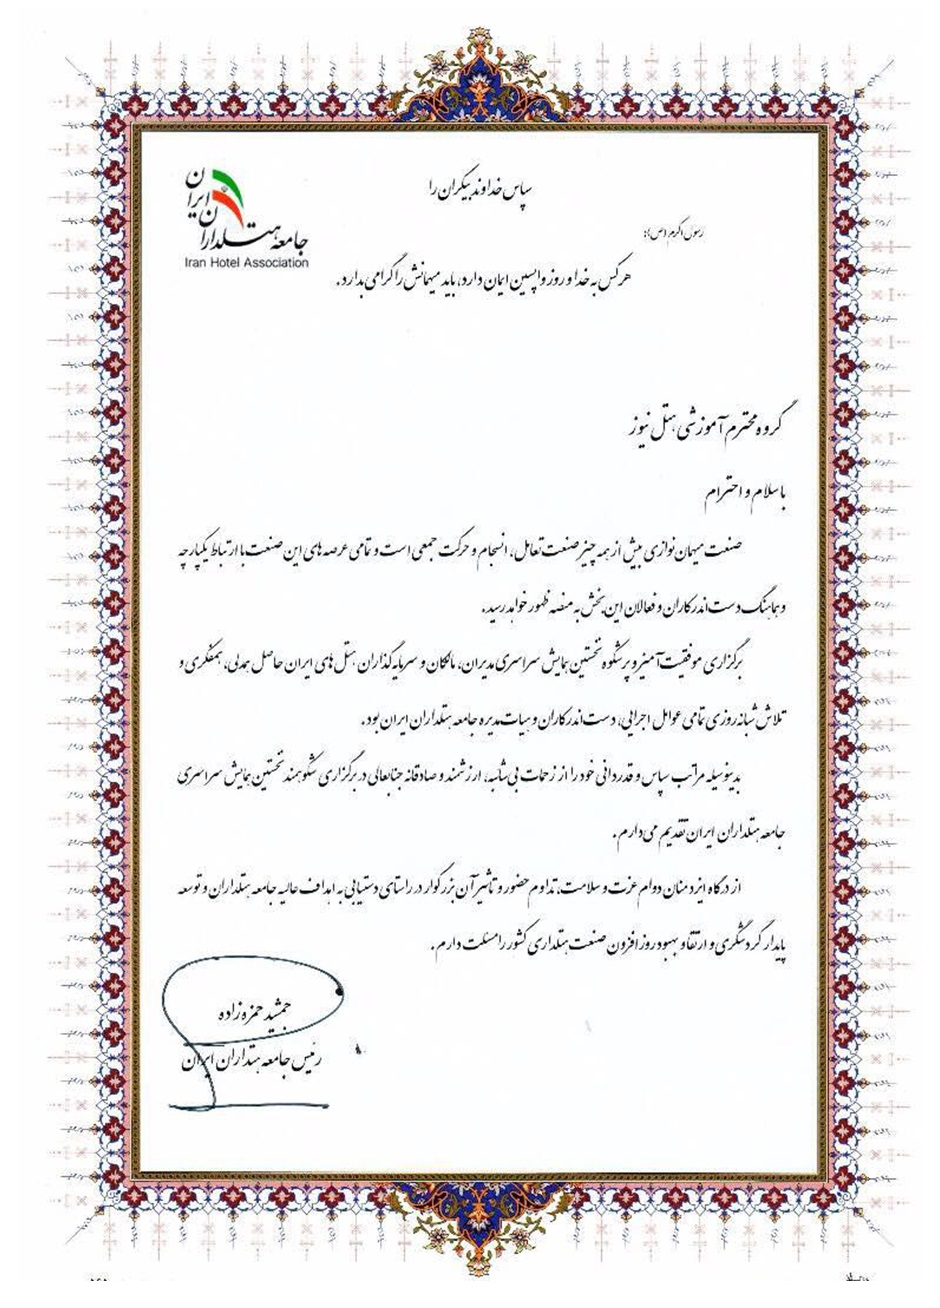 سپاس خداوند بیکران را
جامعه هتلداران ایران
Iran Hotel Association
رسول اکرم (ص):
هر کس به خدا و روز واپسین ایمان دارد، باید میهمانش را گرامی بدارد.
گروه محترم آموزشی هتل نیوز
با سلام و احترام
صنعت میهمان نوازی بیش از همه چیز صنعت تعامل، انسجام و حرکت جمعی است و تمامی عرصه های این صنعت با ارتباط یکپارچه
و هماهنگ دست اندرکاران و فعالان این بخش به منصه ظهور خواهد رسید.
برگزاری موفقیت آمیز و پرشکوه نخستین همایش سراسری مدیران، مالکان و سرمایه گذاران هتل های ایران حاصل همدلی، همفکری و
تلاش شبانه روزی تمامی عوامل اجرایی، دست اندرکاران و هیات مدیره جامعه هتلداران ایران بود.
بدینوسیله مراتب سپاس و قدردانی خود را از زحمات بی شائبه، ارزشمند و صادقانه جنابعالی در برگزاری شکوهمند نخستین همایش سراسری
جامعه هتلداران ایران تقدیم می دارم.
از درگاه ایزد منان دوام عزت و سلامت، تداوم حضور و تاثیر آن بزرگوار در راستای دستیابی به اهداف عالیه جامعه هتلداران و توسعه
پایدار گردشگری و ارتقا و بهبود روز افزون صنعت هتلداری کشور را مسئلت دارم.
جمشید حمزه زاده
رئیس جامعه هتلداران ایران